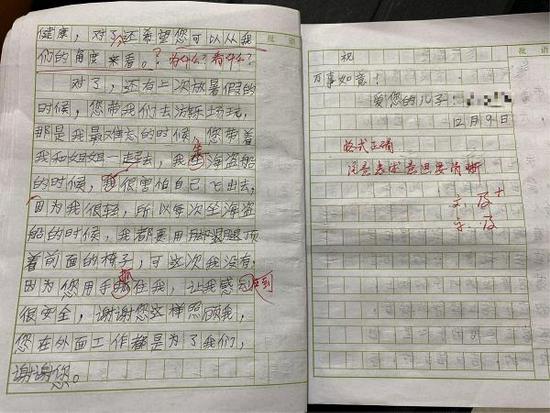 健康，对了还希望您可以从我
们的角度来看。？为什么？看什么？
对了，还有上次放暑假的
时候，您带我们去游乐场玩，
那是我最难忘的时候，您带着
我和姐姐一起去，我坐海盗船
的时候，我很害怕自己飞出去，
因为我很轻，所以每次坐海盗
船的时候，我都要用脚腿顶
着前面的椅子，可这次我没有，
因为您用手抱住我，让我感到
很安全，谢谢您这样照顾我，
您在外面工作都是为了我们，
谢谢您。
批语
祝
万事如意！
爱您的儿子
12月9日
格式正确
注意表达意思要清晰
文：及+
字：及
批语